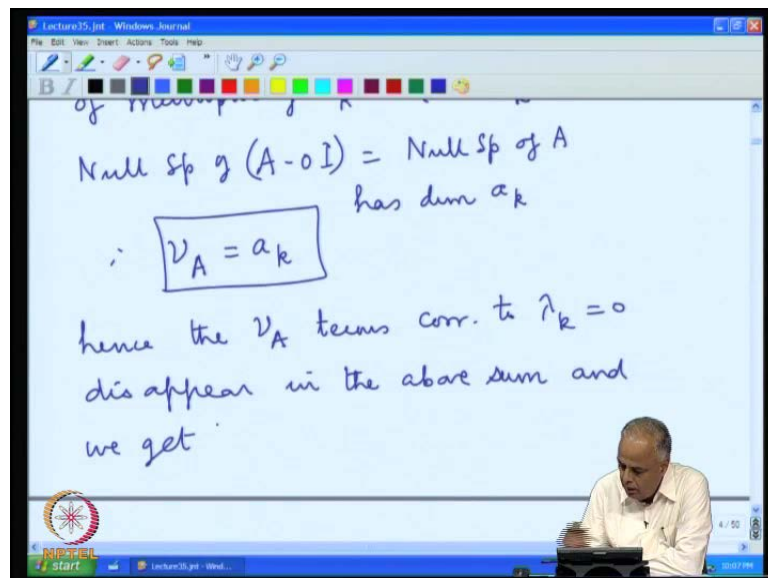 Lecture35.jnt - Windows Journal
File Edit View Insert Actions Tools Help
B I
of
Null Sp of (A - 0 I) = Null Sp of A
has dim a_k
∴ ν_A = a_k
hence the ν_A terms corr. to λ_k = 0
disappear in the above sum and
we get
4 / 50
NPTEL
start Lecture35.jnt - Wind... 10:07 PM